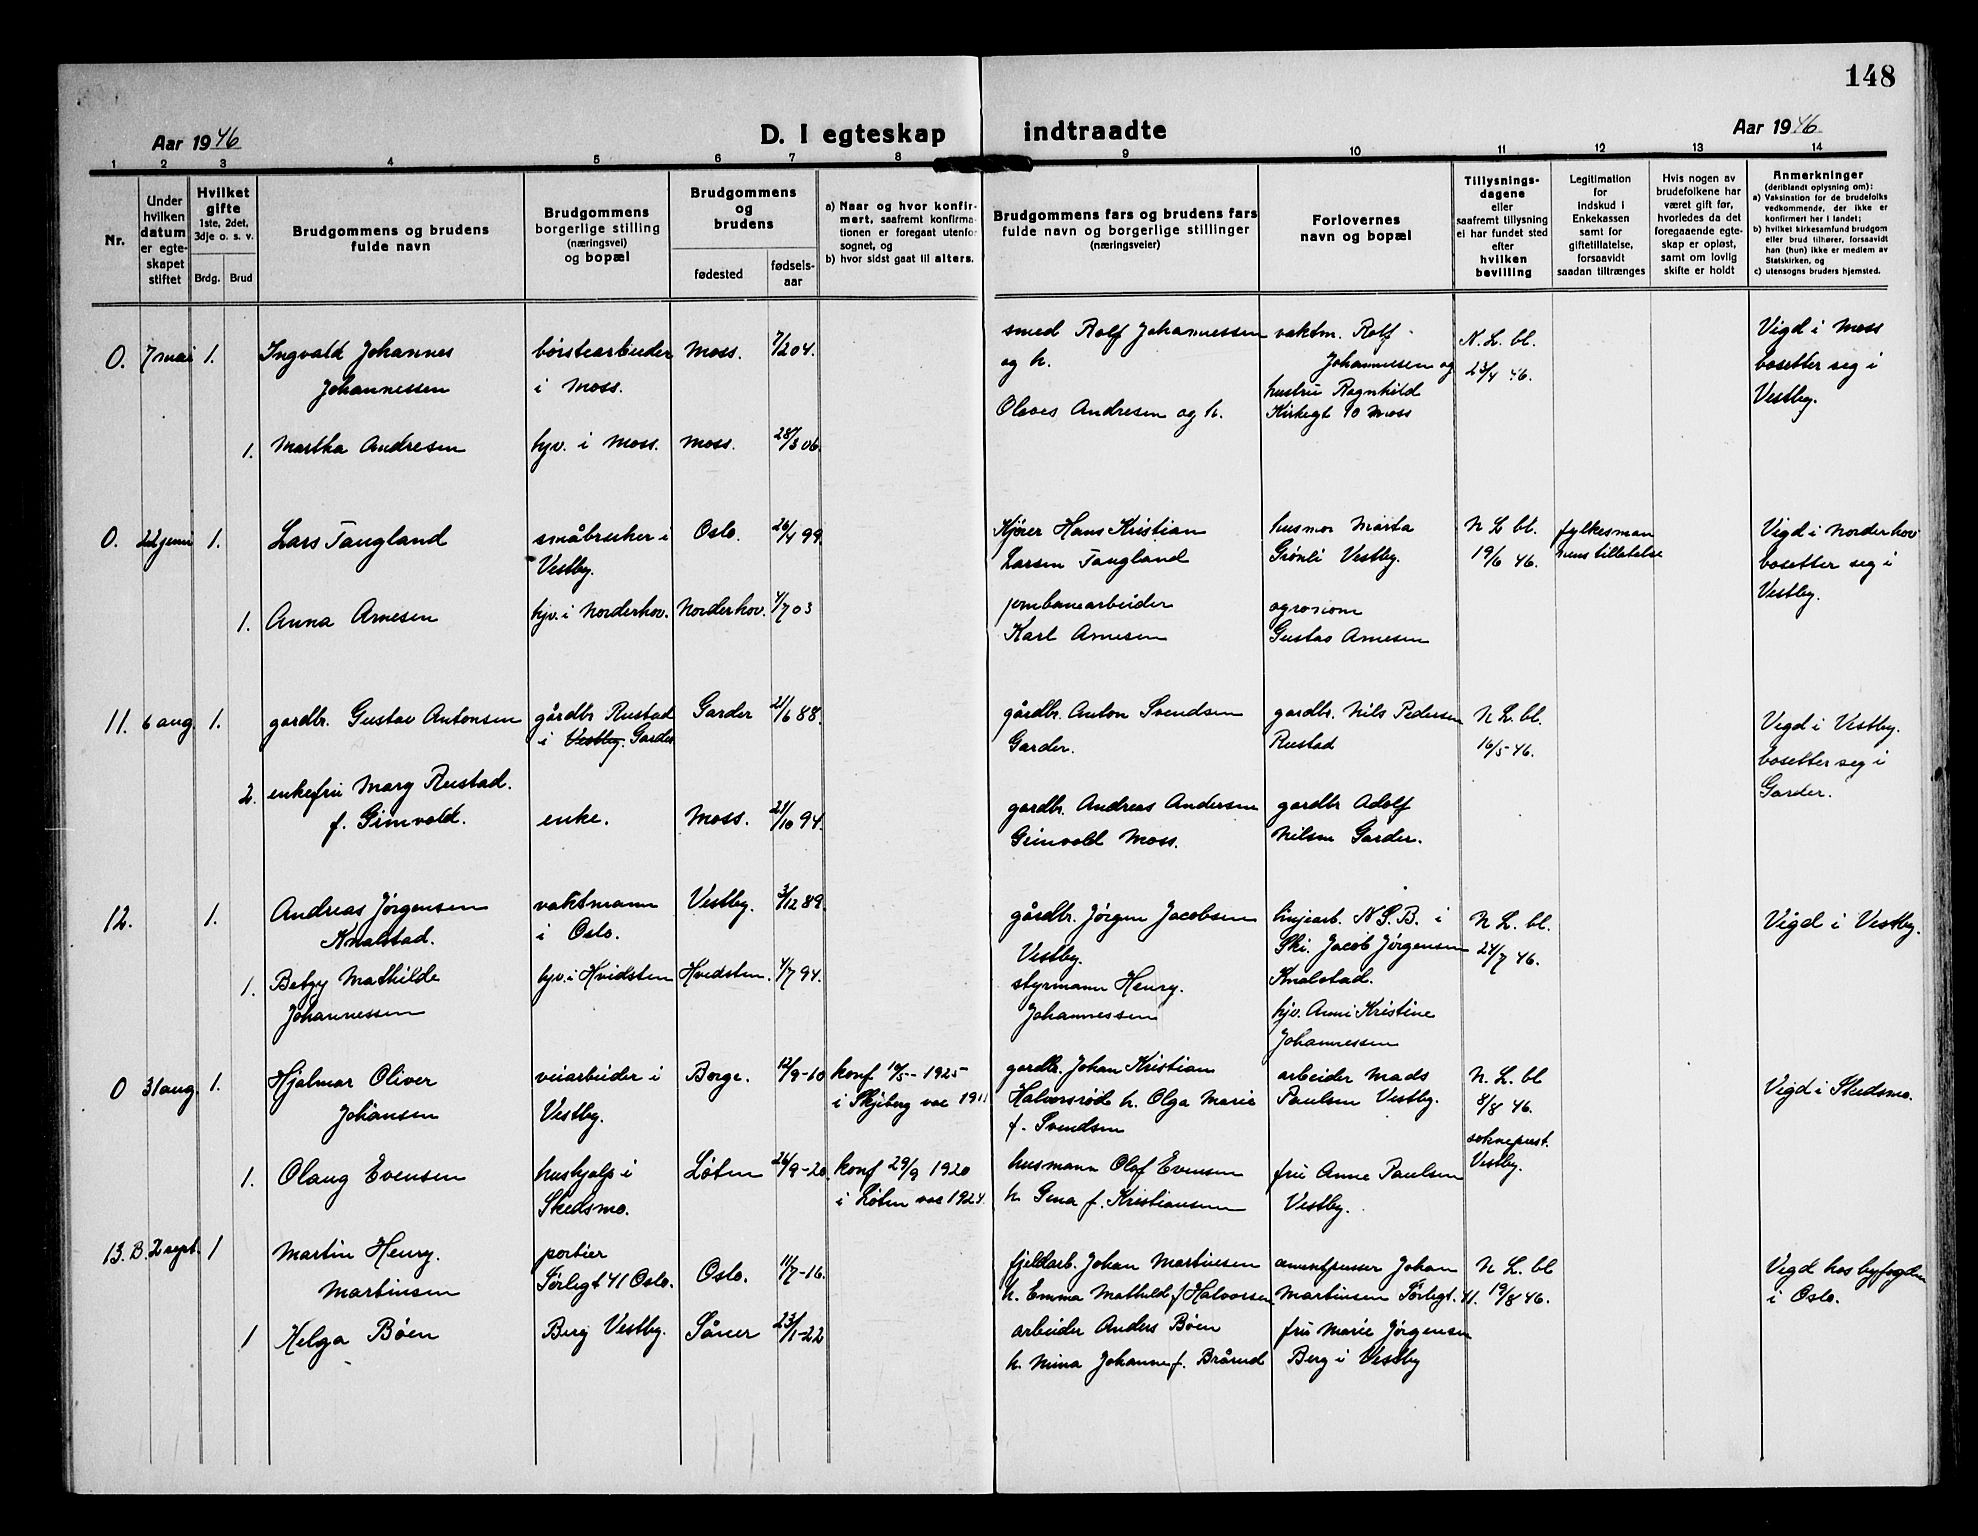 148
Aar 1946
D. I egteskap indtraadte
Aar 1946
1 2 3 4 5 6 7 8 9 10 11 12 13 14
Nr.
Under
hvilken
datum
er egte-
skapet
stiftet
Hvilket
gifte
1ste, 2det,
3dje o. s. v.
Brdg. Brud
Brudgommens og brudens
fulde navn
Brudgommens
borgerlige stilling
(næringsvei)
og bopæl
Brudgommens
og
brudens
fødested
fødsels-
aar
a) Naar og hvor konfir-
mert, saafremt konfirma-
tionen er foregaat utenfor
sognet, og
b) hvor sidst gaat til alters.
Brudgommens fars og brudens fars
fulde navn og borgerlige stillinger
(næringsveier)
Forlovernes
navn og bopæl
Tillysnings-
dagene
eller
saafremt tillysning
ei har fundet sted
efter
hvilken
bevilling
Legitimation
for
indskud i
Enkekassen
samt for
giftetillatelse,
forsaavidt
saadan tiltrænges
Hvis nogen av
brudefolkene har
været gift før,
hvorledes da det
foregaaende egte-
skap er opløst,
samt om lovlig
skifte er holdt
Anmerkninger
(deriblandt oplysning om):
a) Vaksination for de brudefolks
vedkommende, der ikke er
konfirmert her i landet;
b) hvilket kirkesamfund brudgom
eller brud tilhører, forsaavidt
han (hun) ikke er medlem av
Statskirken, og
c) utensogns bruders hjemsted.
0. 7 mai 1.
Ingvald Johannes
Johannessen
børstearbeider
i Moss.
Moss.
7/2 04.
smed Rolf Johannessen
og h.
vaktm. Rolf
Johannessen og
hustru Ragnhild
Kirkegt 90 Moss
N. L. bl.
23/4 46.
Vigd i Moss
bosetter seg i
Vestby.
1. Martha Andresen
hjv. i Moss.
Moss.
28/3 06.
Olaves Andresen og h.
0. 22 juni 1.
Lars Taugland
småbruker i
Vestby.
Oslo.
26/4 99
Kjører Hans Kristian
Larsen Taugland
husmor Marta
Grønli Vestby.
N L bl.
19/6 46.
fylkesman
nens tillatelse
Vigd i Norderhov
bosetter seg i
Vestby.
1. Anna Arnesen
hjv. i Norderhov.
Norderhov.
4/7 03
jernbanearbeider
Karl Arnesen
agronom
Gustav Arnesen
11. 6 aug 1.
gardbr. Gustav Antonsen
gårdbr Rustad
i Vestby. Garder
Garder
21/6 88.
gårdbr. Anton Svendsen
Garder.
gardbr. Nils Pedersen
Rustad
N L. bl.
16/5-46.
Vigd i Vestby.
bosetter seg i
Garder.
2. enkefru Mary Rustad.
f. Gimvold.
enke.
Moss.
21/10 94.
gardbr. Andreas Andersen
Gimvold Moss.
gardbr Adolf
Nilsen Garder.
12. 1.
Andreas Jørgensen
Knalstad.
vaktmann
i Oslo.
Vestby.
3/12 89.
gårdbr. Jørgen Jacobsen
Vestby.
linjearb. N.S.B. i
Ski. Jacob Jørgensen
Knalstad.
N L. bl.
24/7 46.
Vigd i Vestby.
1. Betzy Mathilde
Johannessen
hjv. i Hvidsten
Hvidsten.
4/7 94.
styrmann Henry.
Johannessen
hjv. Anni Kristine
Johannessen
0 31 aug. 1.
Hjalmar Oliver
Johansen
veiarbeider i
Vestby.
Borge.
12/9-10
konf 19/5-1925-
i Skjeberg vac 1911
gardbr. Johan Kristian
Halvorsrød h. Olga Marie
f. Svendsen
arbeider Mads
Paulsen Vestby.
N. L. bl
8/8 46.
sokneprest.
Vestby.
Vigd i Skedsmo.
1. Olaug Evensen
hushjelp i
Skedsmo.
Løten
26/9-20.
konf 29/9 1920
i Løten vac 1924.
husmann Olaf Evensen
h. Gina f. Kristiansen
fru Anne Paulsen
Vestby.
13. B. 2 sept. 1
Martin Henry.
Martinsen
portier
Sørligt 41 Oslo.
Oslo.
11/7-16.
fjeldarb. Johan Martinsen
h. Emma Mathild f Halvorsen
Johan
Martinsen Sørligt. 41.
N L. bl
19/8 46.
Vigd hos byfogden
i Oslo.
1 Helga Bøen
Berg Vestby.
Såner
23/1-22
arbeider Anders Bøen
h. Nina Johanne f. Brårud
fru Marie Jørgensen
Berg i Vestby